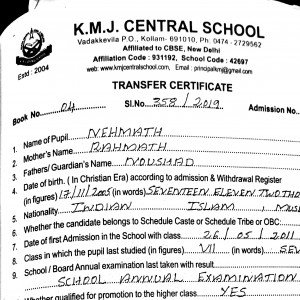 K.M.J. CENTRAL SCHOOL
Vadakkevila P.O., Kollam- 691010, Ph: 0474 - 2729562
Affiliated to CBSE, New Delhi
Affiliation Code : 931192, School Code : 42697
web: www.kmjcentralschool.com, Email : principalkmj@gmail.com
Estd : 2004
TRANSFER CERTIFICATE
Book No. 04 Sl.No. 358/2019 Admission No.
1. Name of Pupil NEHMATH
2. Mother's Name RAHMATH
3. Fathers/Guardian's Name NOUSHAD
4. Date of birth. ( In Christian Era) according to admission & Withdrawal Register
(in figures) 17/11/2005 (in words) SEVENTEEN ELEVEN TWO THO
5. Nationality INDIAN ISLAM, MUS
6. Whether the candidate belongs to Schedule Caste or Schedule Tribe or OBC
7. Date of first Admission in the School with class 26/05/2011
8. Class in which the pupil last studied (in figures) VII (in words) SEV
9. School / Board Annual examination last taken with result
SCHOOL ANNUAL EXAMINATION
Whether qualified for promotion to the higher class YES